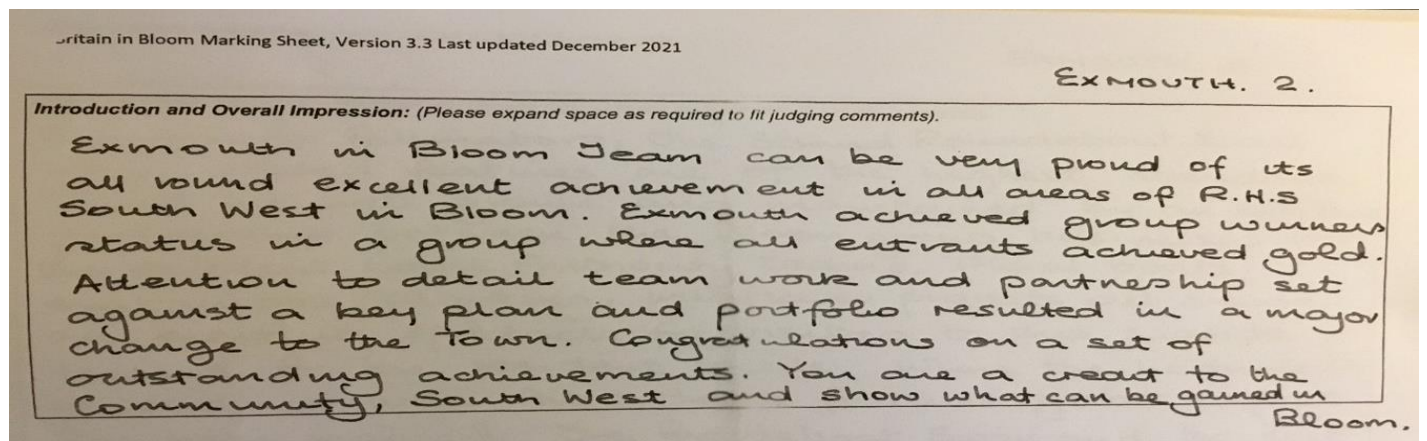 ritain in Bloom Marking Sheet, Version 3.3 Last updated December 2021
EXMOUTH. 2.
Introduction and Overall Impression: (Please expand space as required to fit judging comments).
Exmouth in Bloom Team can be very proud of its
all round excellent achievement in all areas of R.H.S
South West in Bloom. Exmouth achieved group winners
status in a group where all entrants achieved gold.
Attention to detail team work and partneship set
against a key plan and portfolio resulted in a major
change to the Town. Congratulations on a set of
outstanding achievements. You are a credit to the
Community, South West and show what can be gained in
Bloom.